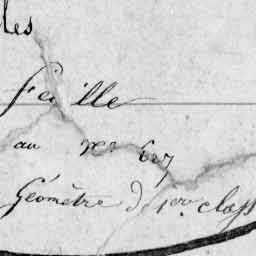 les
feuille
au
Géomètre de 1ere class